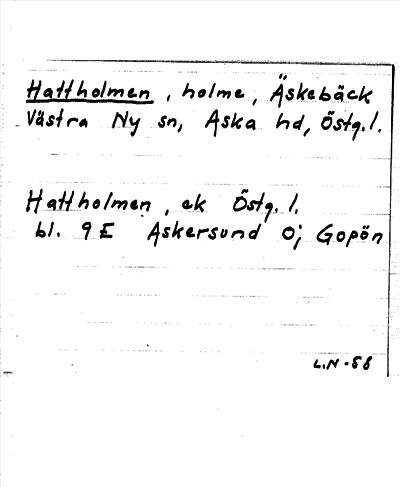 Hattholmen, holme, Äskebäck
Västra Ny sn, Aska hd, Östg.l.
Hattholmen, ek Östg. l.
bl. 9E Askersund O; Gopön
L.N-58